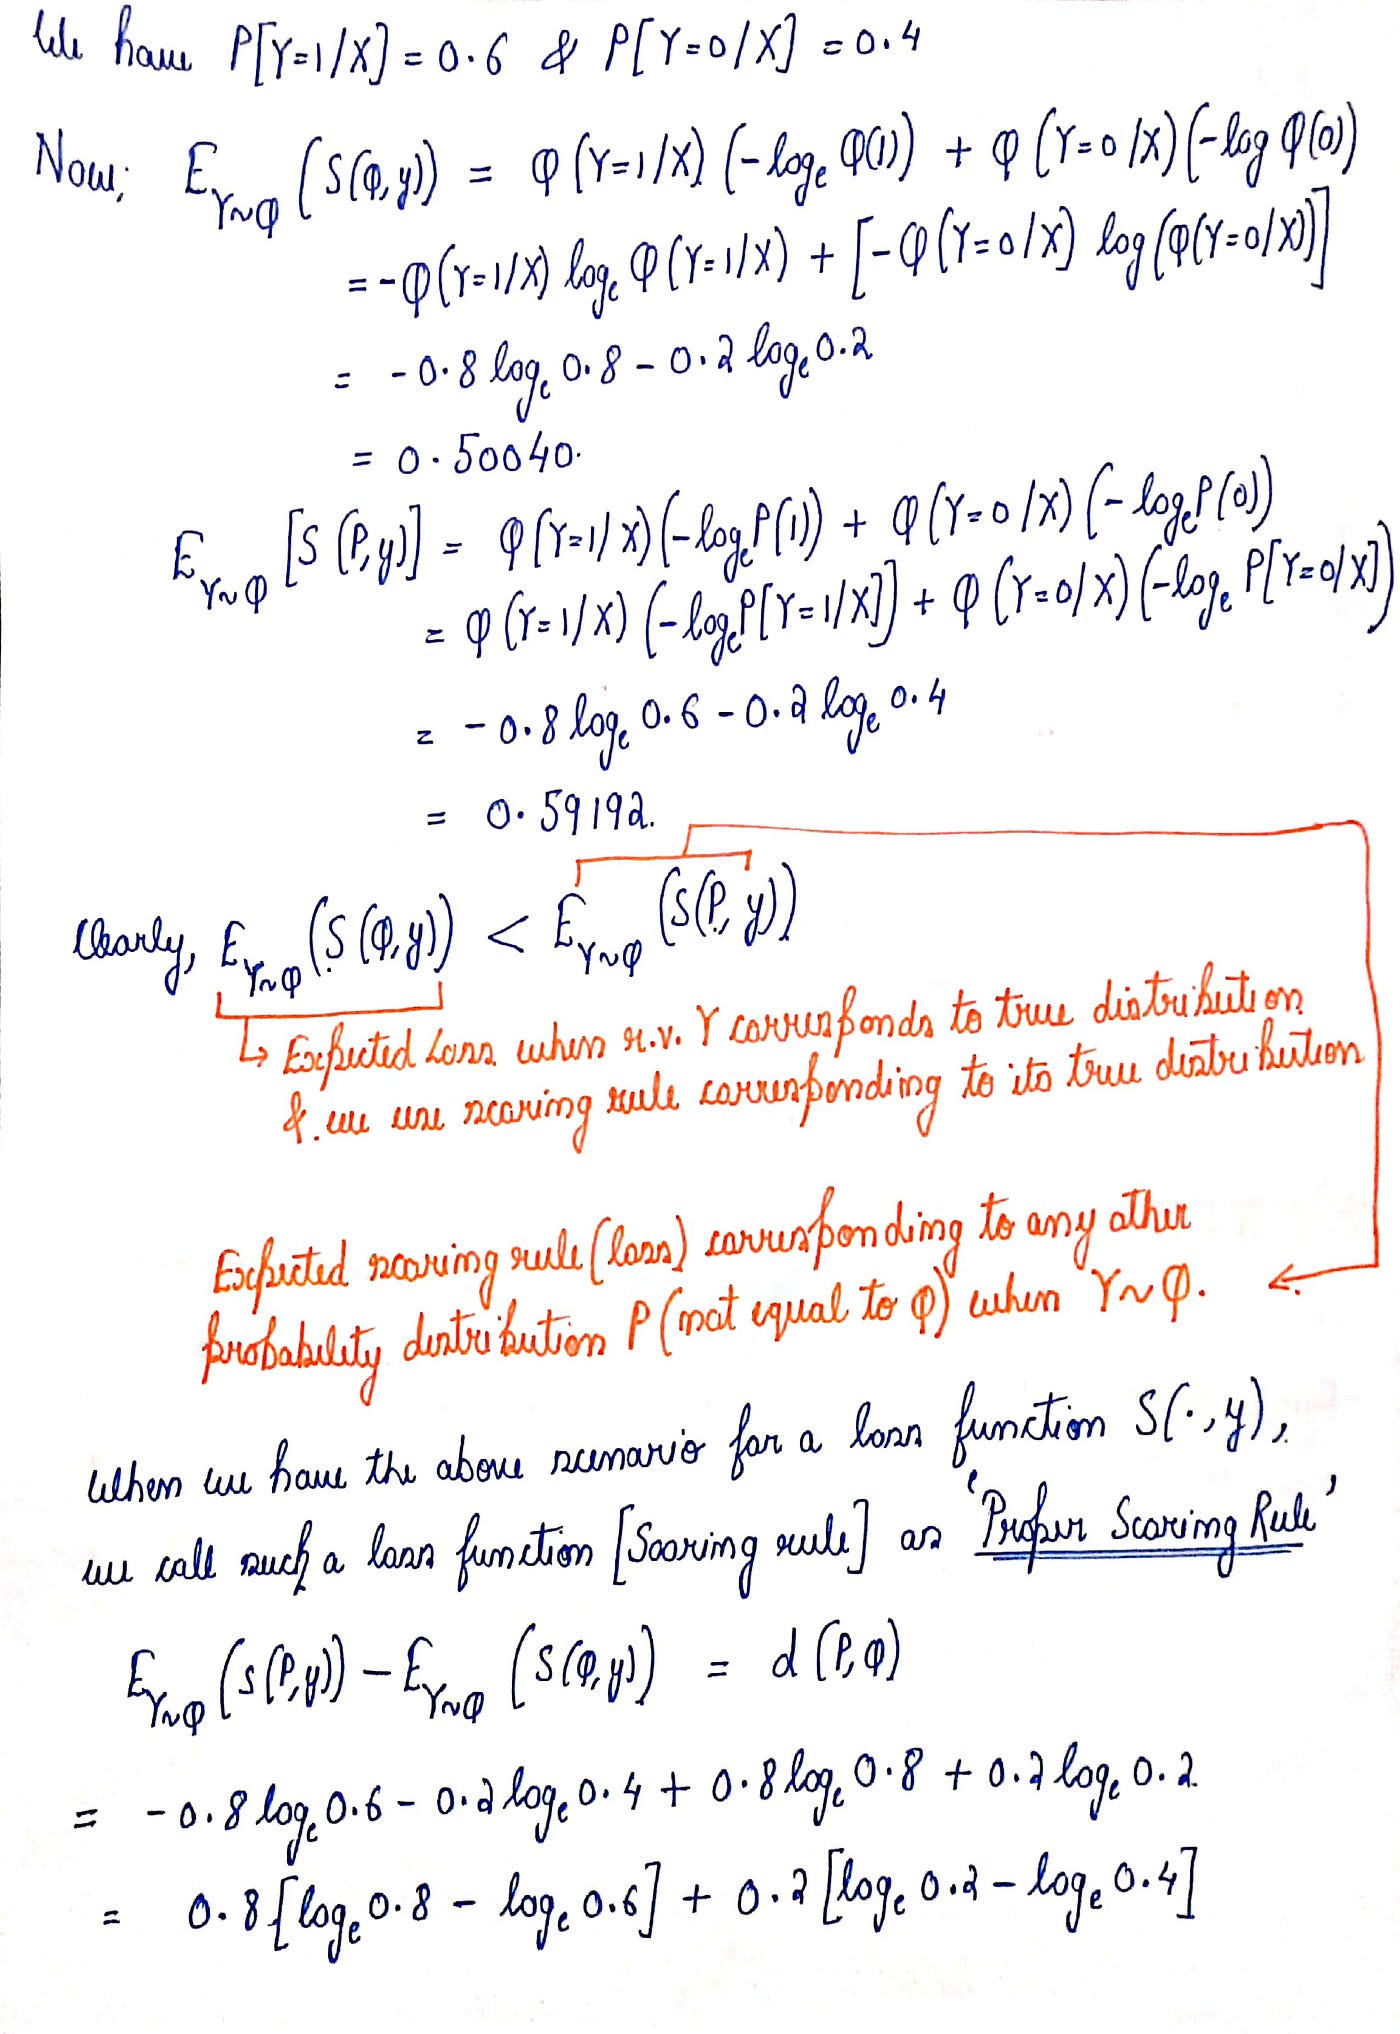 We have P[Y=1/X] = 0.6 & P[Y=0/X] = 0.4
Now; E_{Y~Q} (S(Q,y)) = Q(Y=1/X) (-log_e Q(1)) + Q(Y=0/X)(-log Q(0))
= -Q(Y=1/X) log_e Q(Y=1/X) + [-Q(Y=0/X) log(Q(Y=0/X))]
= -0.8 log_e 0.8 - 0.2 log_e 0.2
= 0.50040.
E_{Y~Q} [S(P,y)] = Q(Y=1/X)(-log_e P(1)) + Q(Y=0/X)(-log_e P(0))
= Q(Y=1/X) (-log_e P[Y=1/X]) + Q(Y=0/X)(-log_e P[Y=0/X])
= -0.8 log_e 0.6 - 0.2 log_e 0.4
= 0.59192.
Clearly, E_{Y~Q} (S(Q,y)) < E_{Y~Q} (S(P,y))
↳ Expected Loss when r.v. Y corresponds to true distribution
& we use scoring rule corresponding to its true distribution
Expected scoring rule (loss) corresponding to any other
probability distribution P (not equal to Q) when Y~Q. ←
When we have the above scenario for a loss function S(·,y),
we call such a loss function [Scoring rule] as 'Proper Scoring Rule'
E_{Y~Q} (S(P,y)) - E_{Y~Q} (S(Q,y)) = d(P,Q)
= -0.8 log_e 0.6 - 0.2 log_e 0.4 + 0.8 log_e 0.8 + 0.2 log_e 0.2
= 0.8 [log_e 0.8 - log_e 0.6] + 0.2 [log_e 0.2 - log_e 0.4]